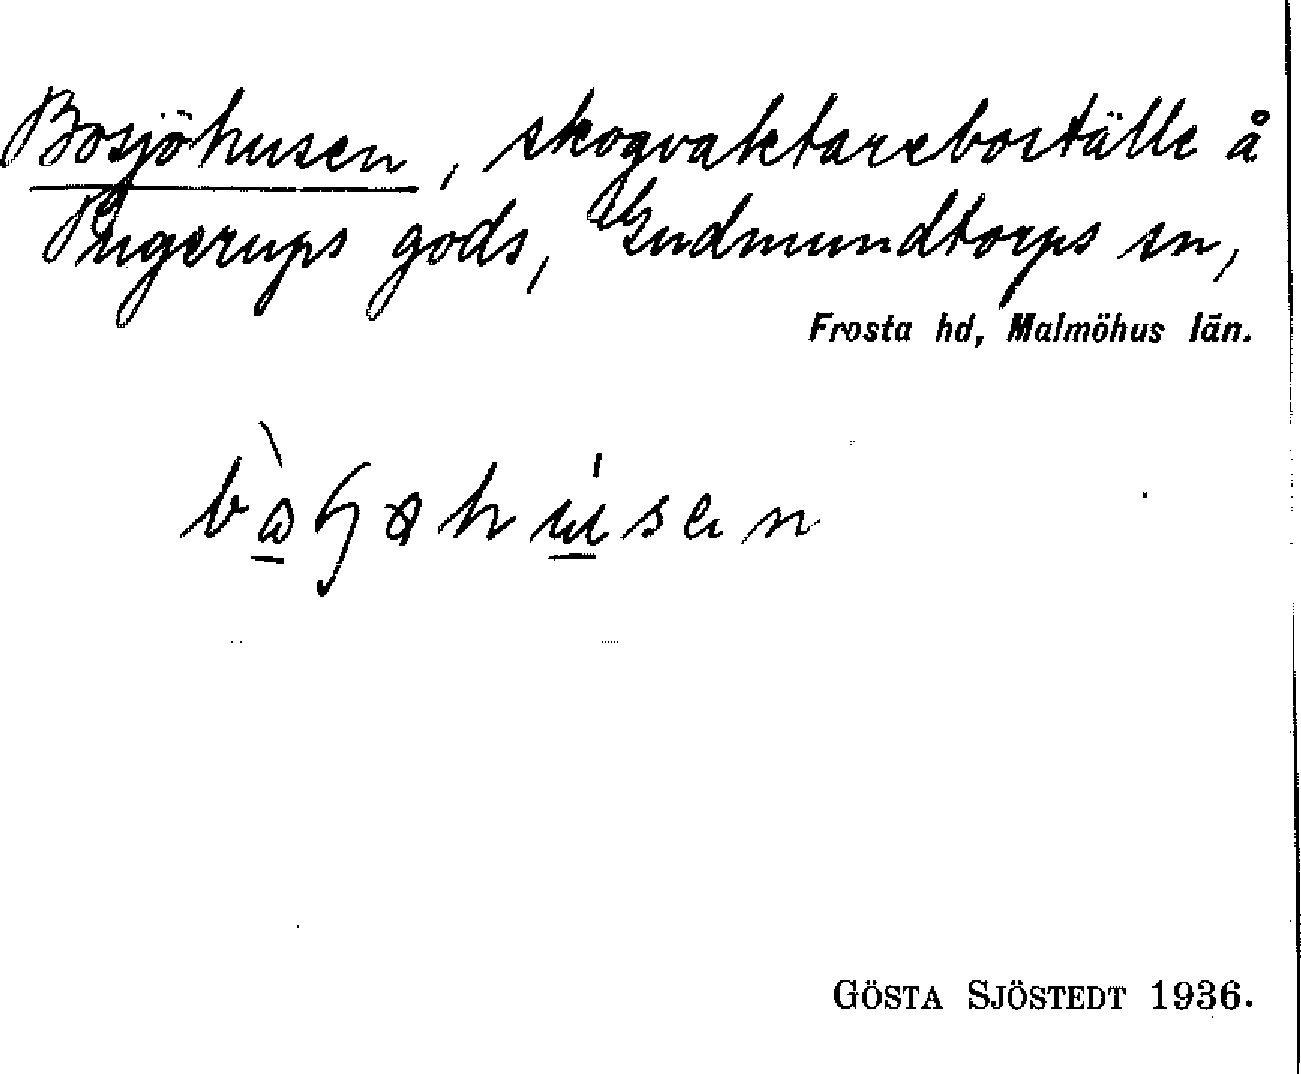 Bosjöhusen, skogvaktareboställe å
Pugerups gods, Gudmundtorps sn,
Frosta hd, Malmöhus län.
GÖSTA SJÖSTEDT 1936.